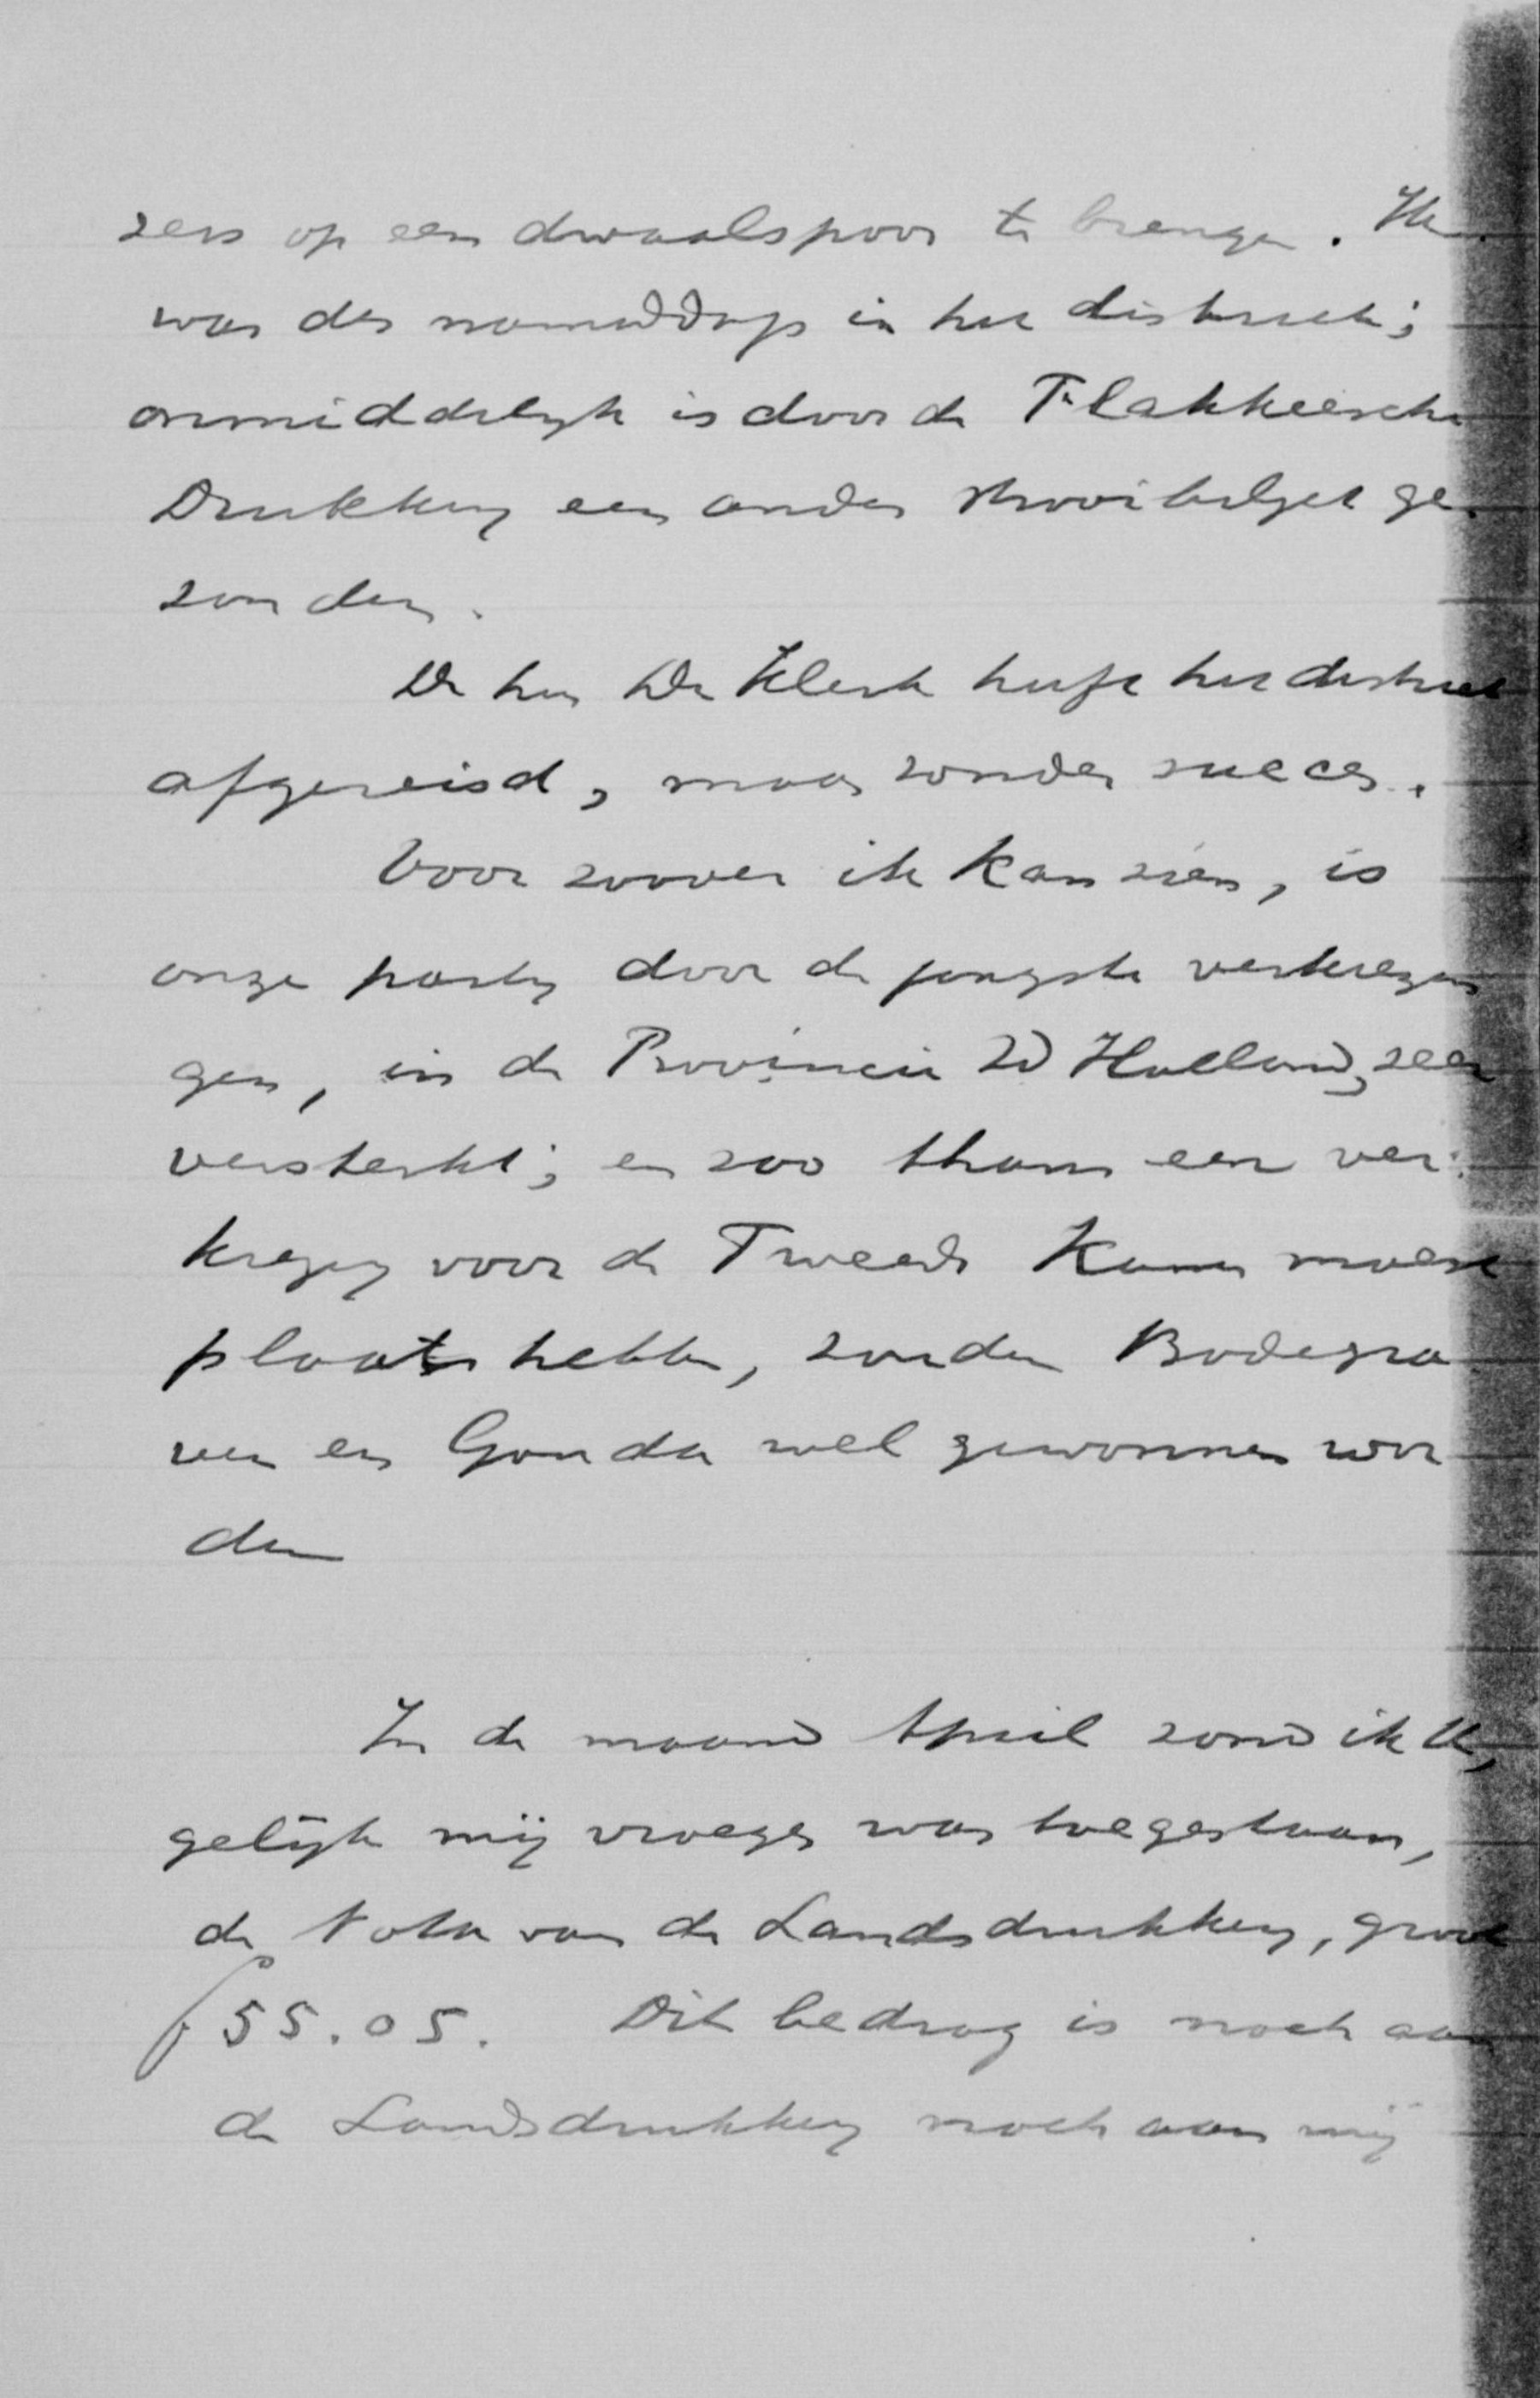 zers op een dwaalspoor te brengen. Ik
was des namiddags in het district;
onmiddelijk is door de Flakkeesche
Drukkerij een ander strooibiljet ge-
zonden.
De heer De Klerk heeft het district
afgereisd, maar zonder succes.
Voor zoover ik kan zien, is
onze partij door de jongste verkiezin
gen, in de Provincie Zd Holland, zeer
versterkt; en zoo thans een ver-
kiezing voor de Tweede Kamer moest
plaats hebben, zouden Bodegra
ven en Gouda wel gewonnen wor
den
In de maand April zond ik U,
gelijk mij vroeger was toegestaan,
de Nota van de Landsdrukkerij, groot
f 55.05. Dit bedrag is noch aan
de Landsdrukkerij noch aan mij